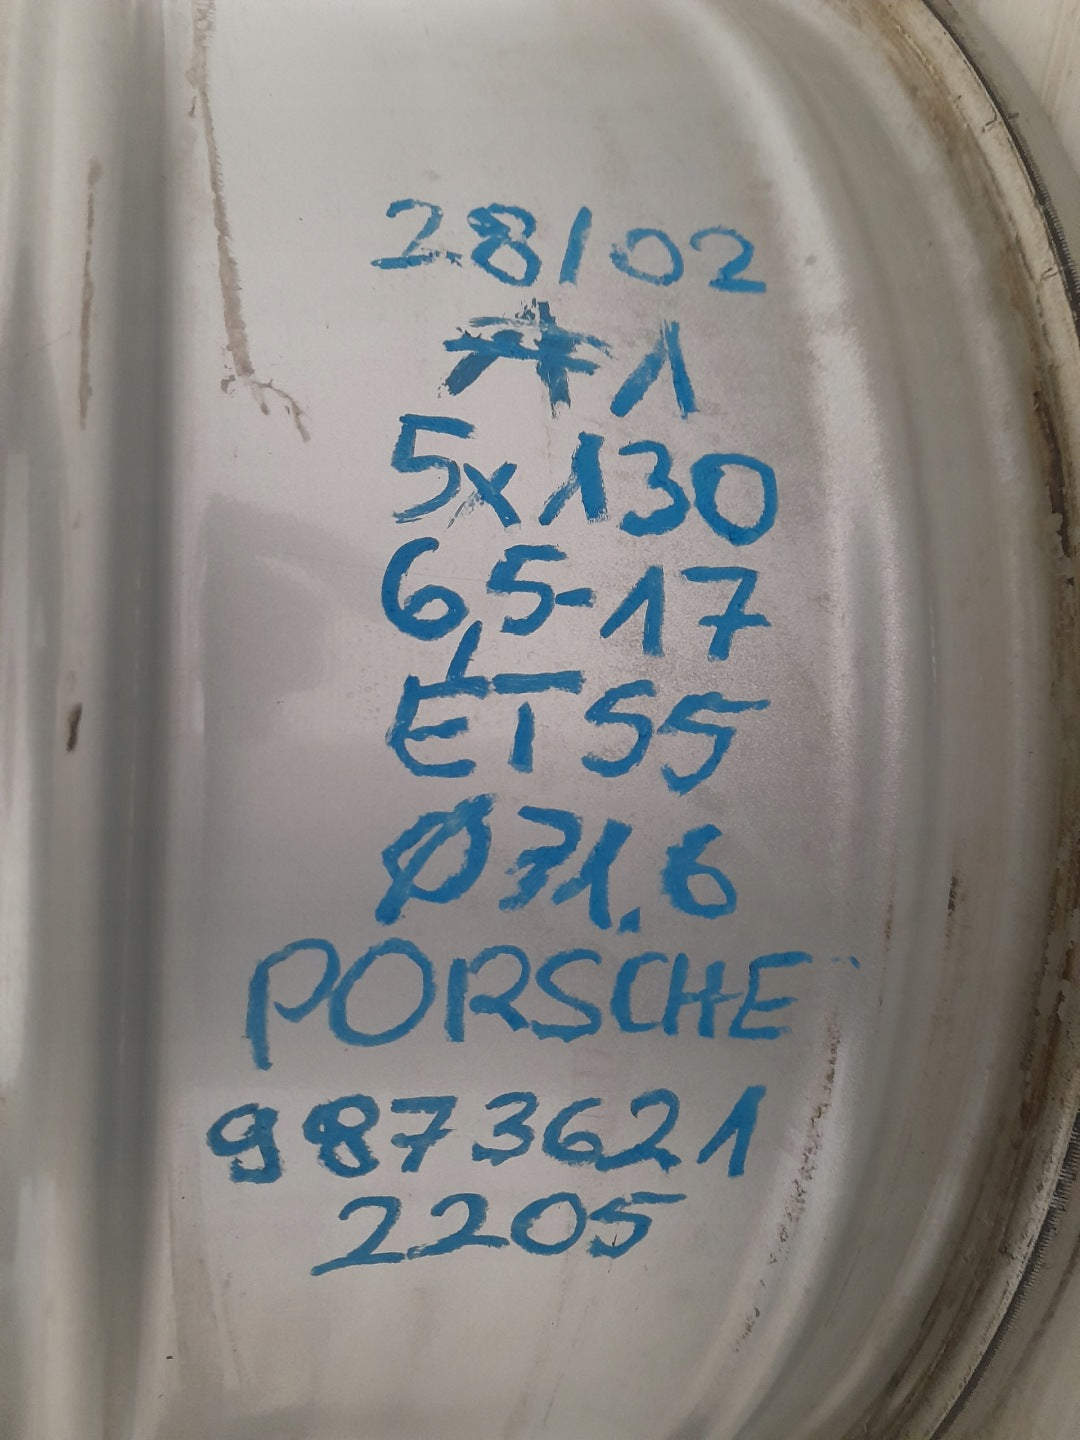 28/02
#1
5x130
6,5-17
ET55
Ø71.6
PORSCHE
9873621
2205